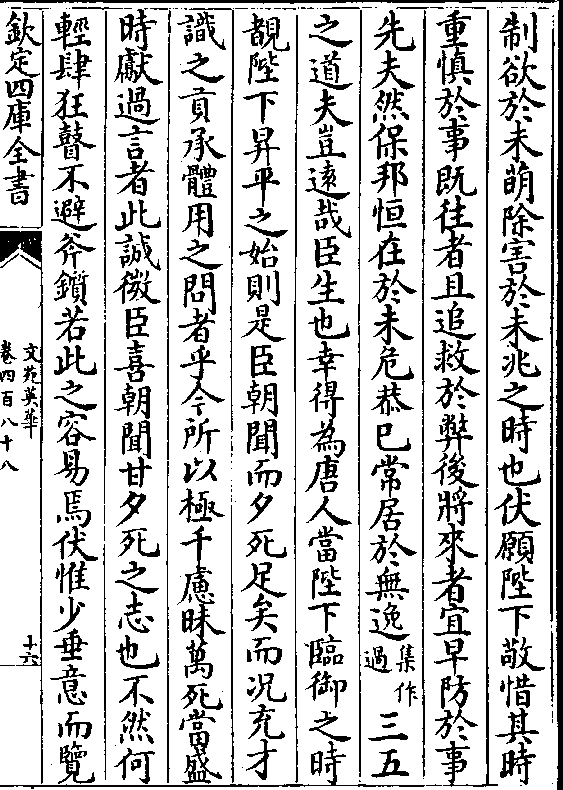 制欲於未萌除害於未兆之時也伏願陛下敬惜其時
重慎於事既往者且追救於弊後將來者宜早防於事
先夫然保邦恒在於未危恭已常居於無逸集作過三五
之道夫豈遠哉臣生也幸得為唐人當陛下臨御之時
覩陛下昇平之始則是臣朝聞而夕死足矣而况充才
識之貢承體用之問者乎今所以極千慮昧萬死當盛
時獻過言者此誠微臣喜朝聞甘夕死之志也不然何
輕肆狂瞽不避斧鑕若此之容易焉伏惟少垂意而覽
欽定四庫全書
文苑英華
卷四百八十八
十六